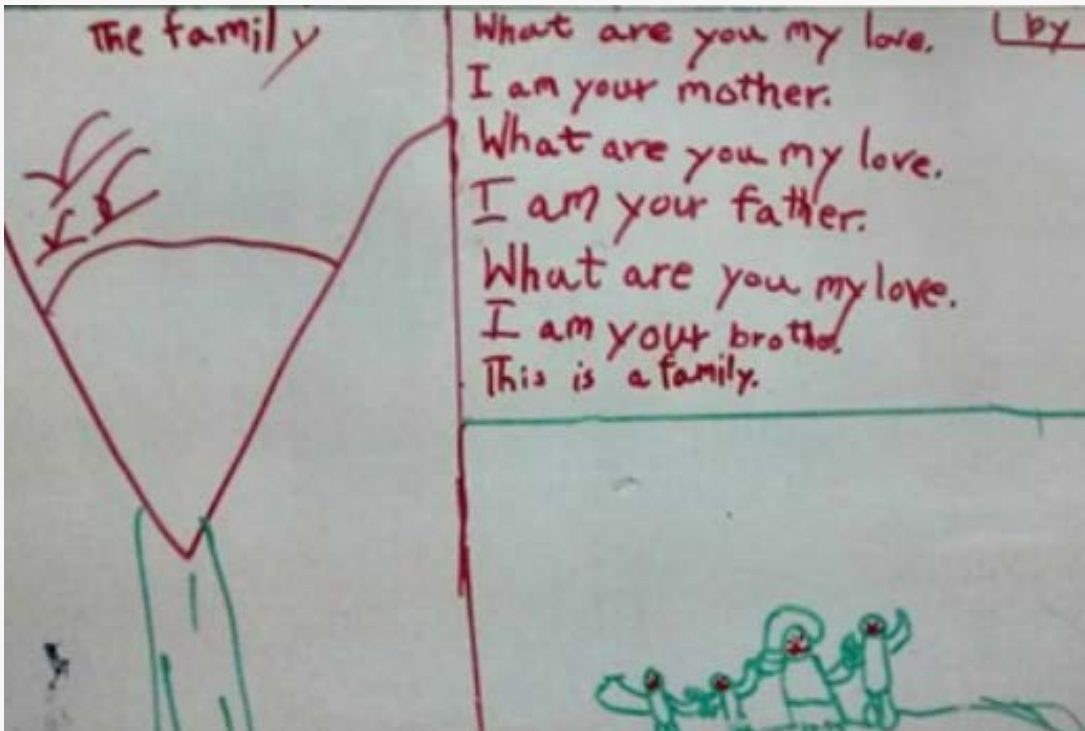 The family
What are you my love.
by
I am your mother.
What are you my love.
I am your father.
What are you my love.
I am your brother.
This is a family.